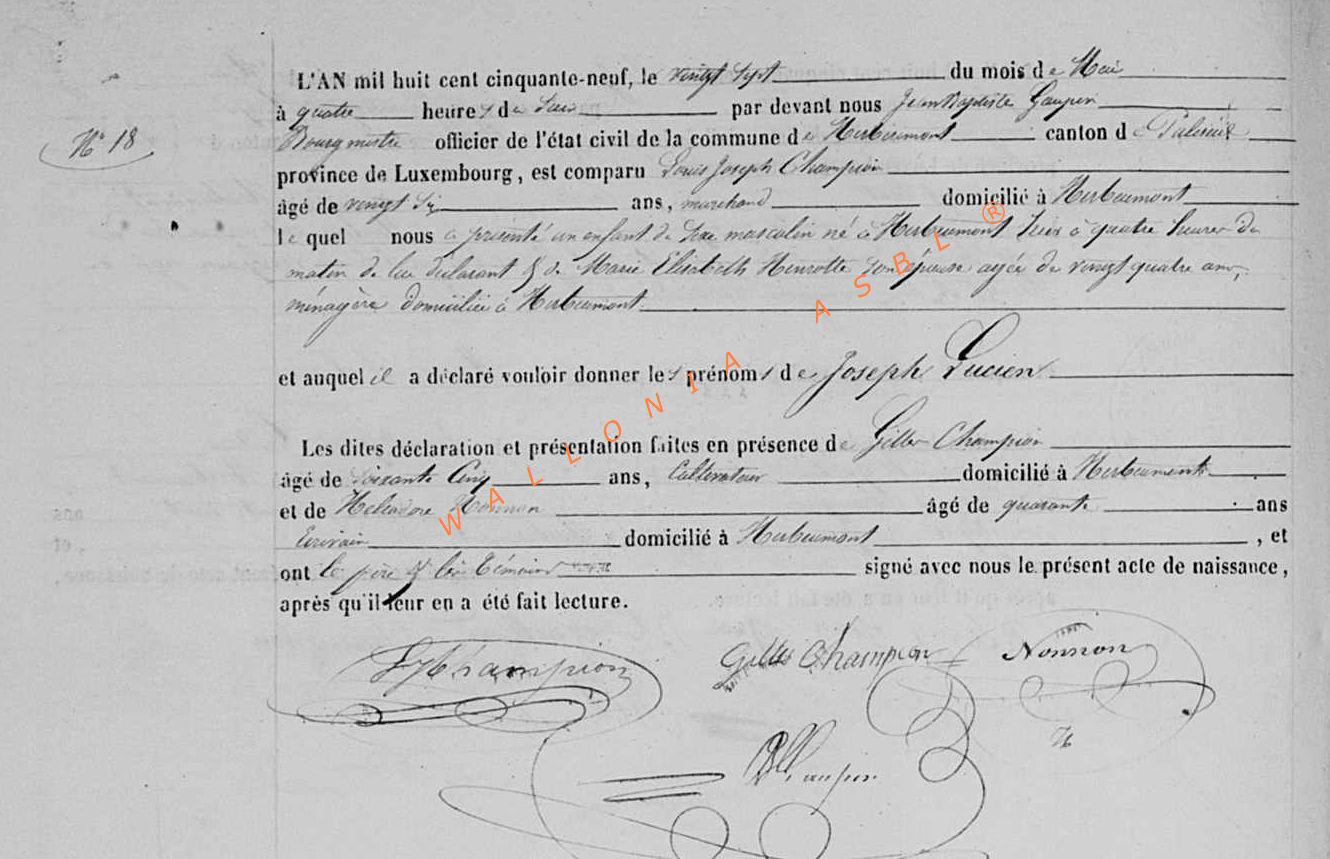 N° 18
L'AN mil huit cent cinquante-neuf, le vingt sept du mois de Mai
à quatre heures de soir par devant nous Jean Baptiste Gaupin
Bourgmestre officier de l'état civil de la commune de Herbeumont canton de Paliseul
province de Luxembourg, est comparu Louis Joseph Champion
âgé de vingt six ans, marchand domicilié à Herbeumont
le quel nous a présenté un enfant de sexe masculin né à Herbeumont hier à quatre heures du
matin de lui déclarant & de Marie Elisabeth Henrotte son épouse agée de vingt quatre ans,
ménagère domiciliée à Herbeumont
et auquel il a déclaré vouloir donner les prénoms de Joseph Lucien
Les dites déclaration et présentation faites en présence de Gilles Champion
âgé de soixante Cinq ans, Cultivateur domicilié à Herbeumont
et de Heliodore Nonnon âgé de quarante ans
Ecrivain domicilié à Herbeumont, et
ont le père & les témoins signé avec nous le présent acte de naissance,
après qu'il leur en a été fait lecture.
Champion
Gilles Champion
Nonnon
Gaupin
WALLONIA ASBL ®